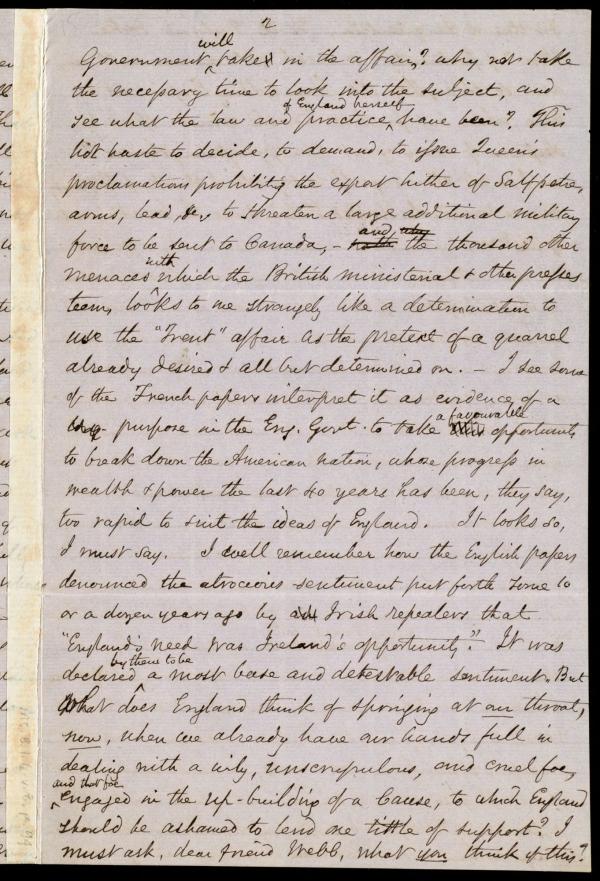 2
Government will take in the affair? why not take
the necessary time to look into the subject, and
see what the law and practice of England herself have been? This
hot haste to decide, to demand, to issue Queen's
proclamations prohibiting the export hither of Saltpetre,
arms, lead, &c, to threaten a large additional military
force to be sent to Canada, – and the thousand other
menaces with which the British ministerial & other presses
teem, looks to me strangely like a determination to
use the "Trent" affair as the pretext of a quarrel
already desired & all but determined on. – I see some
of the French papers interpret it as evidence of a
purpose in the Eng. Govt. to take a favourable opportunity
to break down the American nation, whose progress in
wealth & power the last 40 years has been, they say,
too rapid to suit the ideas of England. It looks so,
I must say. I well remember how the English papers
denounced the atrocious sentiment put forth some 10
or a dozen years ago by Irish repealers that
"England's need was Ireland's opportunity." It was
declared by them to be a most base and detestable sentiment. But
What does England think of springing at our throat,
now, when we already have our hands full in
dealing with a wily, unscrupulous, and cruel foe,
and that foe engaged in the up-building of a Cause, to which England
should be ashamed to lend one tittle of support? I
must ask, dear friend Webb, what you think of this?